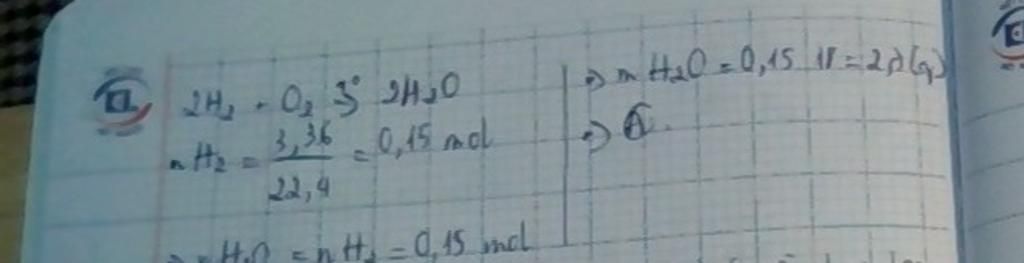 2H₂ + O₂ t° 2H₂O
nH₂ = 3,36 / 22,4 = 0,15 mol
nH₂O = nH₂ = 0,15 mol
=> m H₂O = 0,15 . 18 = 2,7(g)
=>